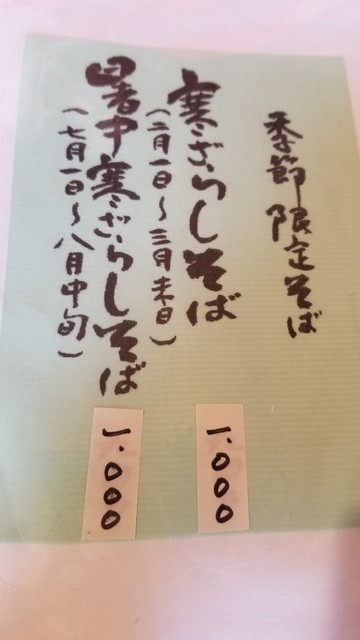 季節限定そば
寒ざらしそば
(二月一日～三月末日)
一.000
暑中寒ざらしそば
(七月一日～八月中旬)
一.000